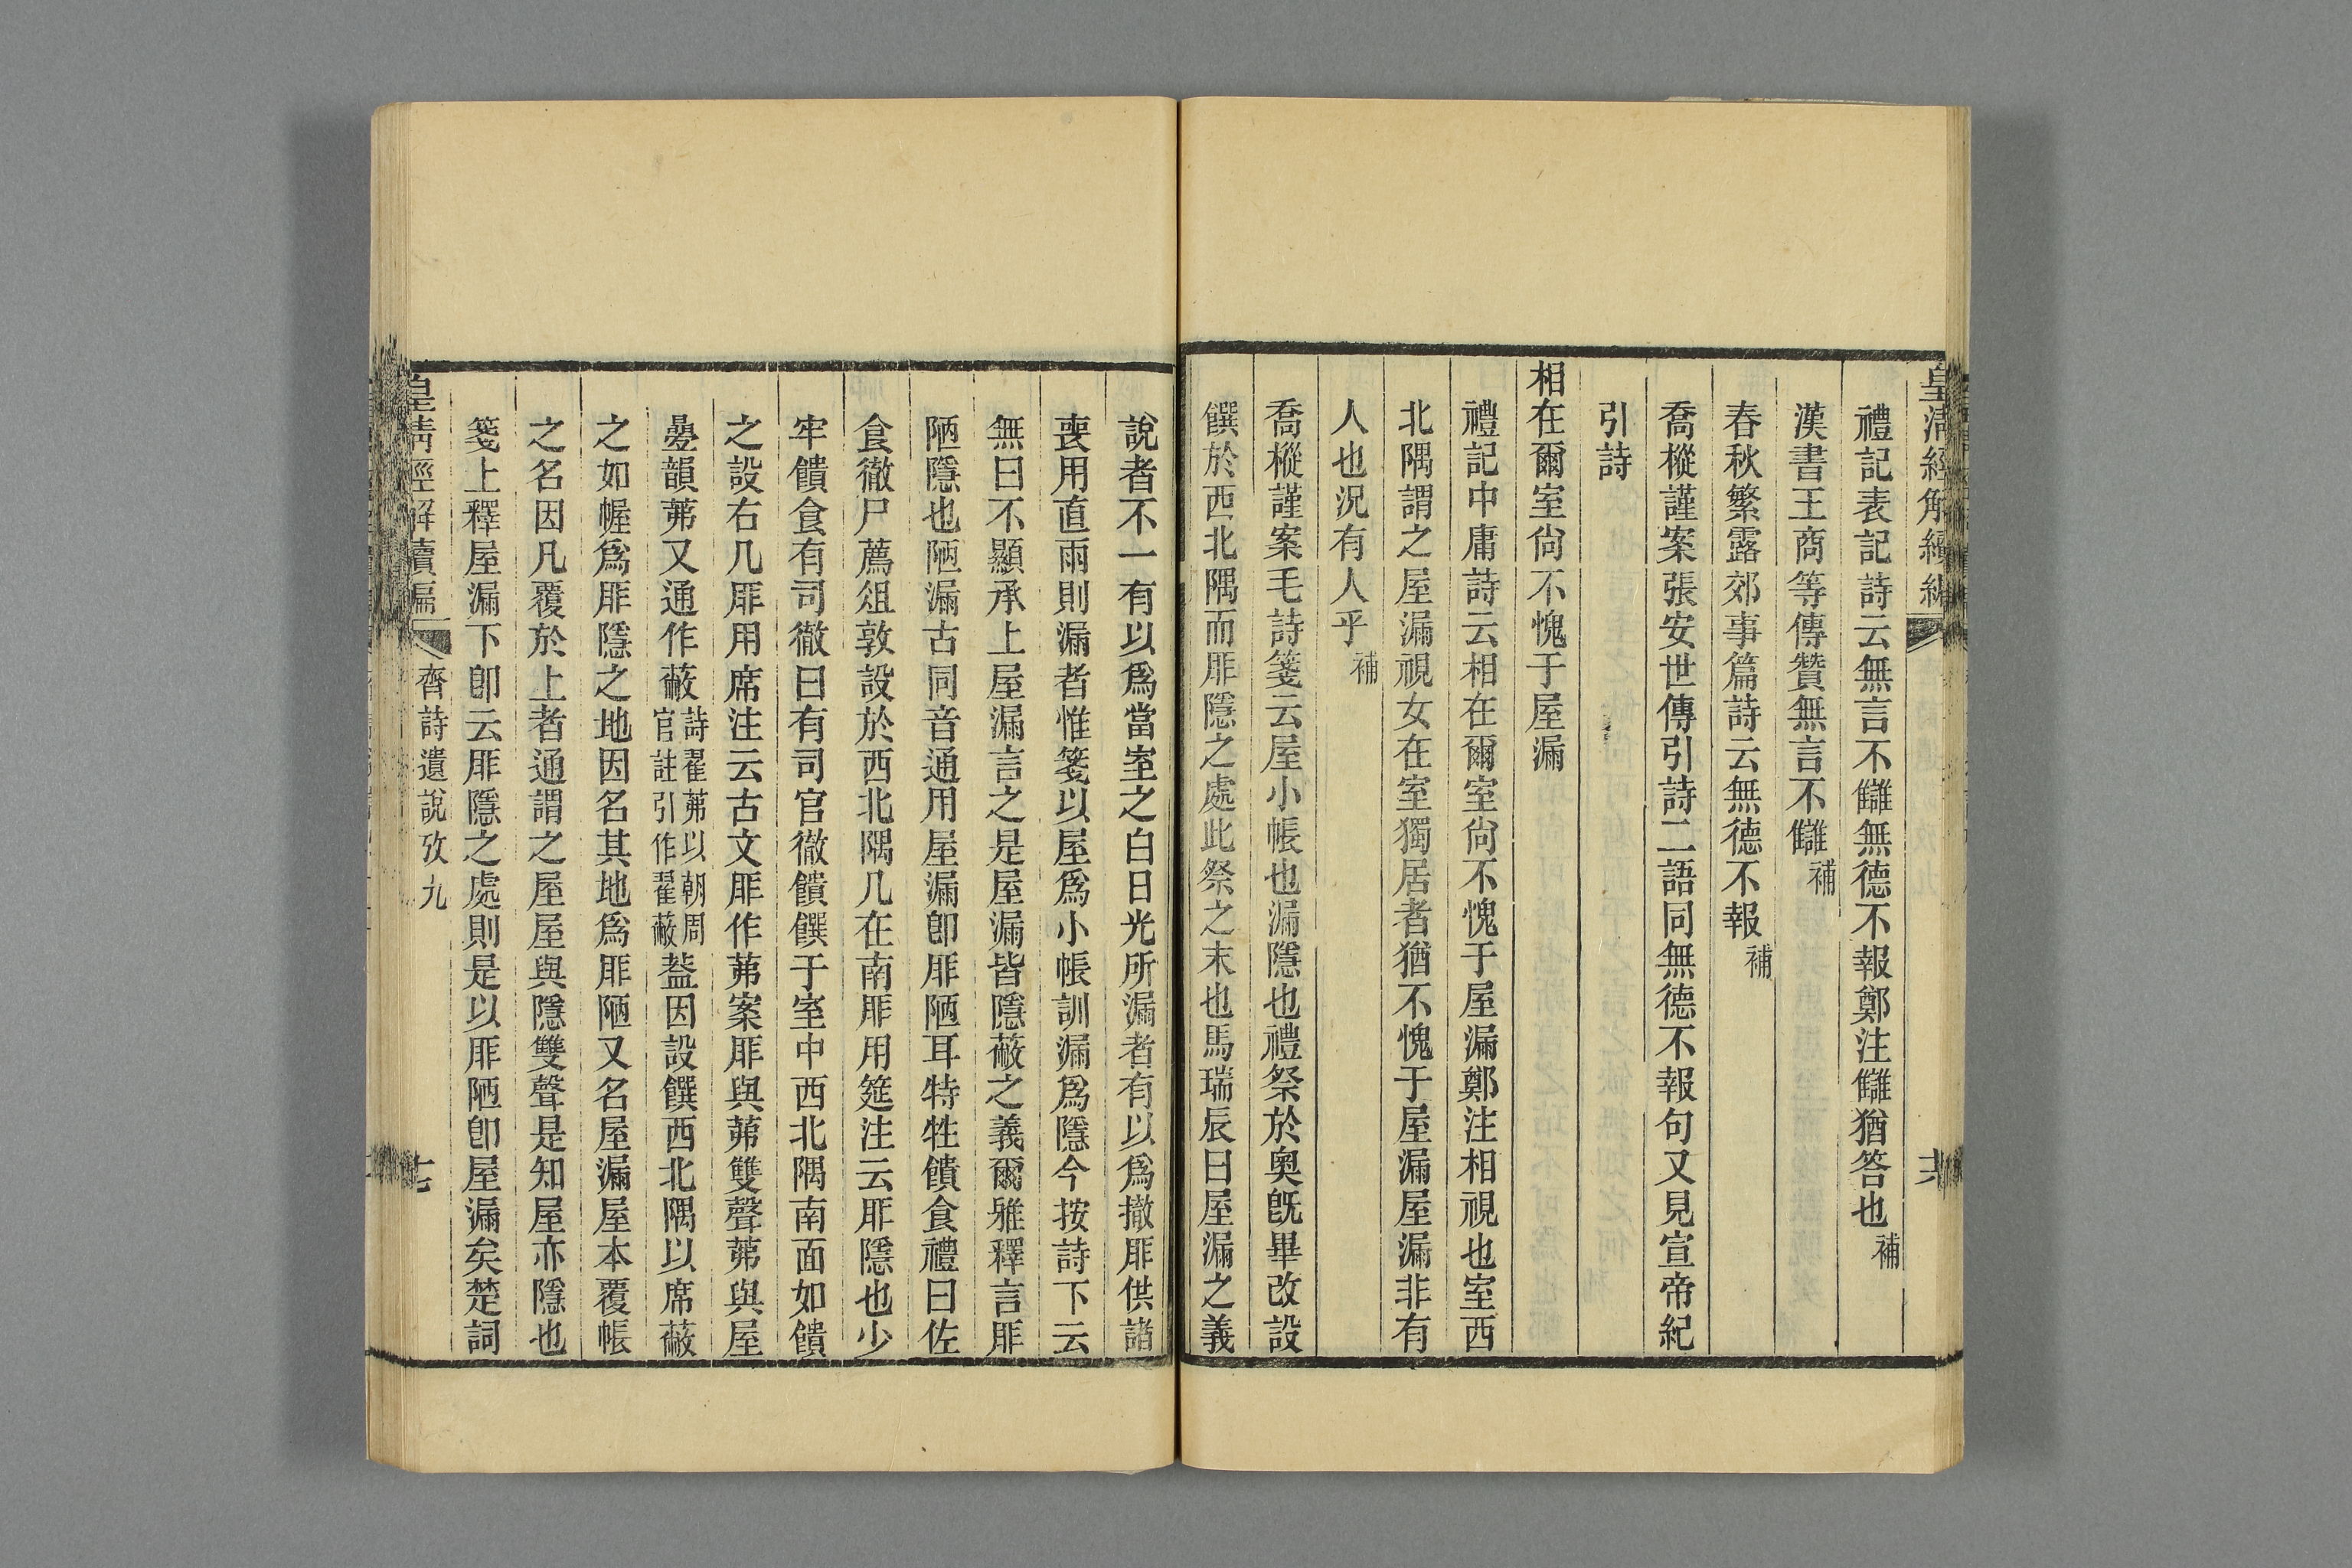 皇清經解續編
禮記表記詩云無言不讎無德不報鄭注讎猶答也補
漢書王商等傳贊無言不讎補
春秋繁露郊事篇詩云無德不報補
喬樅謹案張安世傳引詩二語同無德不報句又見宣帝紀
引詩
相在爾室尙不愧于屋漏
禮記中庸詩云相在爾室尙不愧于屋漏鄭注相視也室西
北隅謂之屋漏視女在室獨居者猶不愧于屋漏屋漏非有
人也況有人乎補
喬樅謹案毛詩箋云屋小帳也漏隱也禮祭於奧旣畢改設
饌於西北隅而厞隱之處此祭之末也馬瑞辰曰屋漏之義
說者不一有以爲當室之白日光所漏者有以爲撤厞供諸
喪用直雨則漏者惟箋以屋爲小帳訓漏爲隱今按詩下云
無曰不顯承上屋漏言之是屋漏皆隱蔽之義爾雅釋言厞
陋隱也陋漏古同音通用屋漏卽厞陋耳特牲饋食禮曰佐
食徹尸薦俎敦設於西北隅几在南厞用筵注云厞隱也少
牢饋食有司徹曰有司官徹饋饌于室中西北隅南面如饋
之設右几厞用席注云古文厞作茀案厞與茀雙聲茀與屋
疊韻茀又通作蔽詩翟茀以朝周官註引作翟蔽葢因設饌西北隅以席蔽
之如幄爲厞隱之地因名其地爲厞陋又名屋漏屋本覆帳
之名因凡覆於上者通謂之屋屋與隱雙聲是知屋亦隱也
箋上釋屋漏下卽云厞隱之處則是以厞陋卽屋漏矣楚詞
皇清經解續編 齊詩遺說攷九 十七